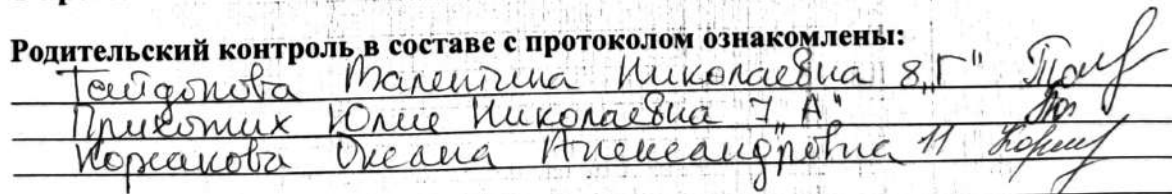 Родительский контроль в составе с протоколом ознакомлены:
Тайдонова Валентина Николаевна 8 „Г"
Прихотих Юлие Николаевна 7 „А"
Корсакова Оксана Александровна 11